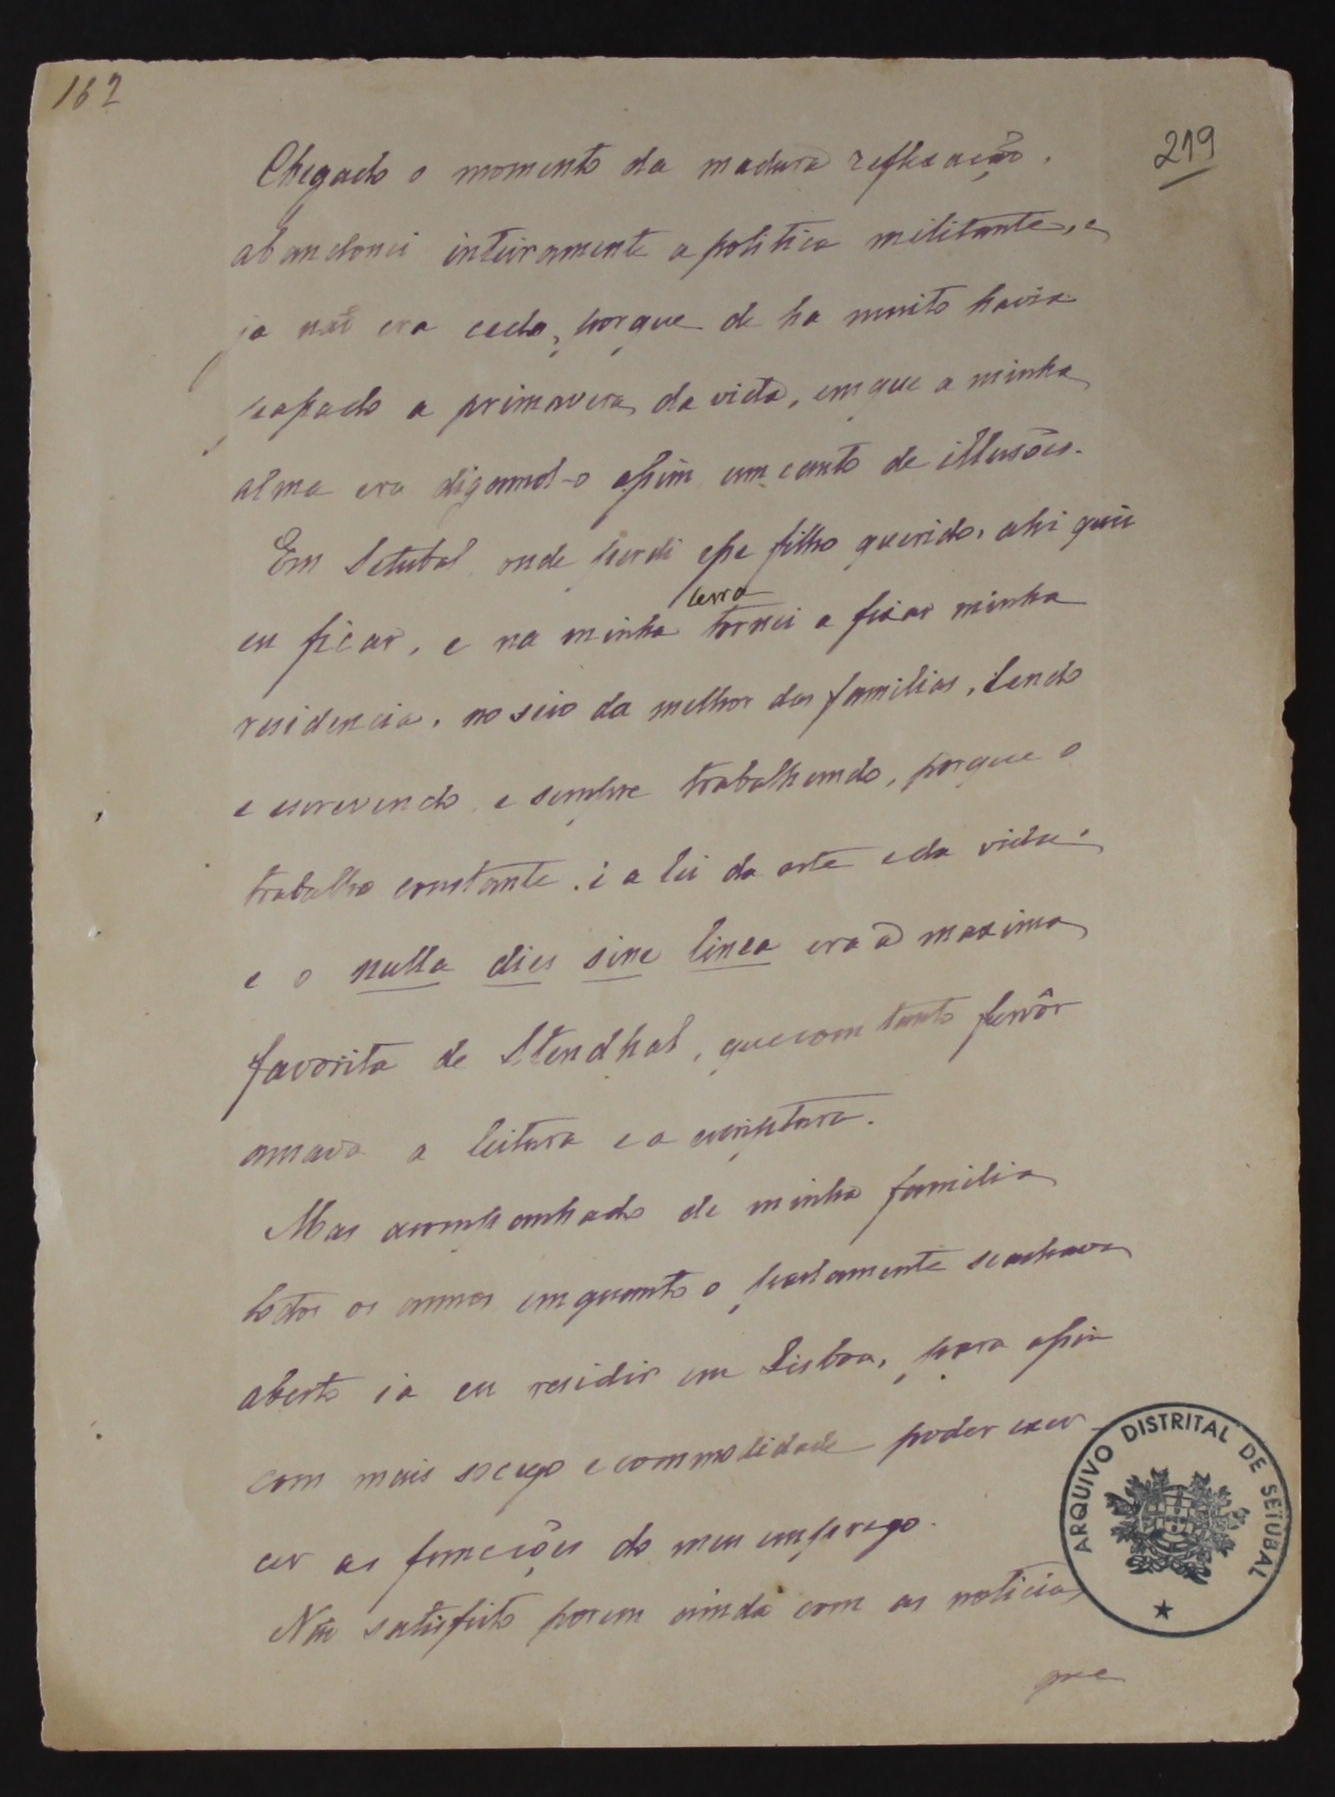 162
219
Chegado o momento da madura reflexação,
abandonei inteiramente a politica militante, e
ja não era cedo, porque de ha muito havia
cessado a primavera da vida, em que a minha
alma era digamol-o assim um canto de illusões.
Em Setubal onde perdi esse filho querido, ahi quiz
terra
eu ficar, e na minha tornei a fixar minha
residencia, no seio da melhor das familias, lendo
e escrevendo e sempre trabalhando, porque o
trabalho constante é a lei da arte e da vida,
e o nulla dies sine linea era a maxima
favorita de Stendhal, que com tanto fervôr
amava a leitura e a escriptura.
Mas acompanhado de minha familia
todos os annos emquanto o parlamento se achava
aberto ia eu residir em Lisboa, para assim
com mais socego e commodidade poder exer-
cer as funcções do meu emprego.
Não satisfeito porem ainda com as noticias
que
ARQUIVO DISTRITAL DE SETUBAL